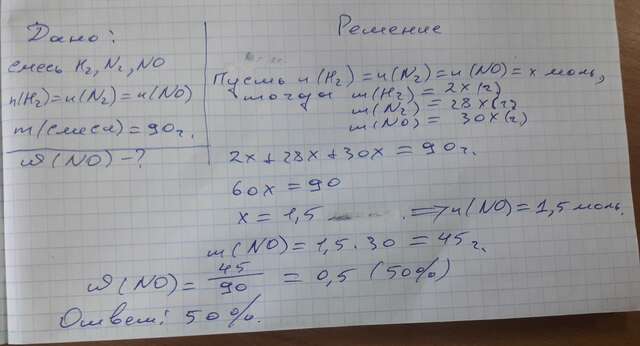 Дано:
смесь H₂, N₂, NO
n(H₂)=n(N₂)=n(NO)
m(смеси)=90г.
ω(NO)-?
Решение
Пусть n(H₂)=n(N₂)=n(NO)=x моль,
тогда m(H₂) = 2x(г)
m(N₂) = 28x(г)
m(NO) = 30x(г)
2x+28x+30x=90г.
60x=90
x=1,5 ⟹n(NO)=1,5 моль.
m(NO)=1,5·30=45г.
ω(NO)=45/90=0,5 (50%)
Ответ: 50%.